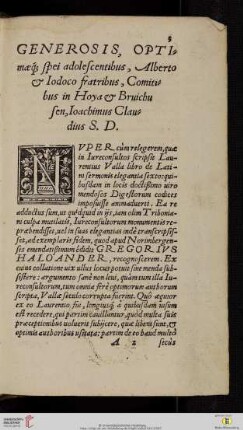 GENEROSIS, OPTI-
mæq́; spei adolescentibus, Alberto
& Iodoco fratribus, Comiti-
bus in Hoya & Bruichu
sen, Ioachimus Clau-
dius S. D.
NVPER cùm relegerem, quæ
in Iureconsultos scripsit Lau-
rentius Valla libro de Lati-
ni sermonis elegantia sexto: qui-
busdam in locis doctissimo uiro
mendosos Digestorum codices
imposuisse animaduerti. Ea re
adductus sum, ut quidquid in ijs, iam olim Tribonia-
ni culpa mutilatis, Iureconsultorum monumentis re-
præhendisset, uel in suas elegantias inde transcripsis-
set, ad exemplaris fidem, quod apud Norimbergen-
ses emendatissimum ædidit GREGORIVS
HALOANDER, recognoscerem. Ex
cuius collatione uix ullus locus potuit sine menda sub-
sistere: argumento sanè non leui, quàm tum illa Iure-
consultorum, tum omnia ferè optimorum authorum
scripta, Vallæ seculo corrupta fuerint. Quò æquior
et eo Laurentio fui, longiusq́; à quibusdam uisum
est recedere, qui partim cauilluntur, quòd multa suis
præceptionibus uoluerit subijcere, quæ libera sunt, et
optimis authoribus usitata: partim de eo haud multò
A 2 secus